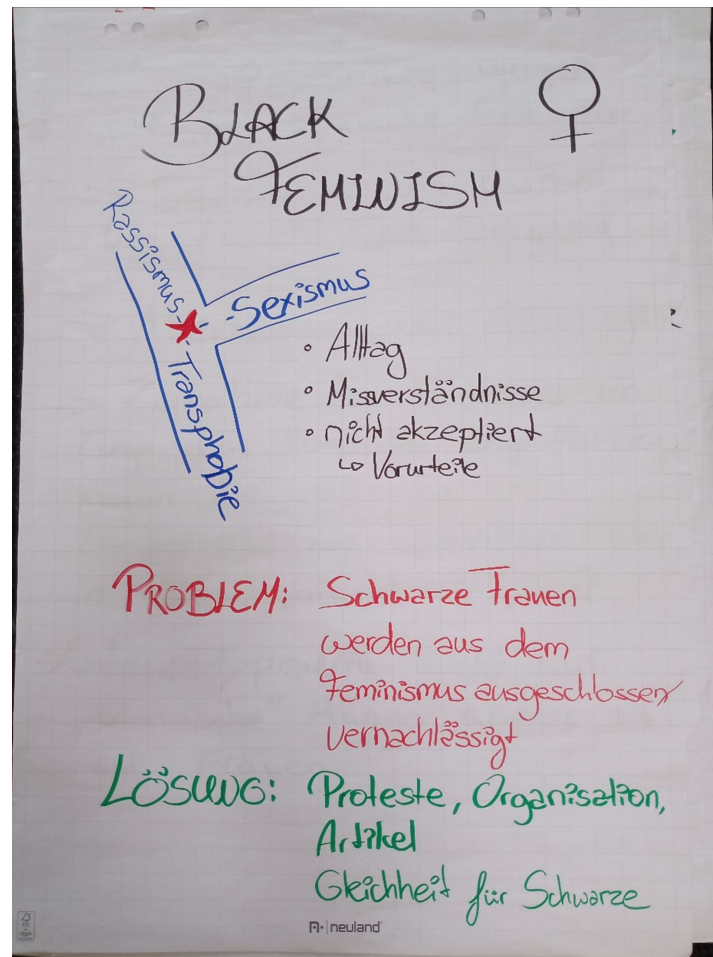 BLACK
FEMINISM
Rassismus
Sexismus
Transphobie
• Alltag
• Missverständnisse
• nicht akzeptiert
↳ Vorurteile
PROBLEM: Schwarze Frauen
werden aus dem
Feminismus ausgeschlossen/
vernachlässigt
LÖSUNG: Proteste, Organisation,
Artikel
Gleichheit für Schwarze
neuland